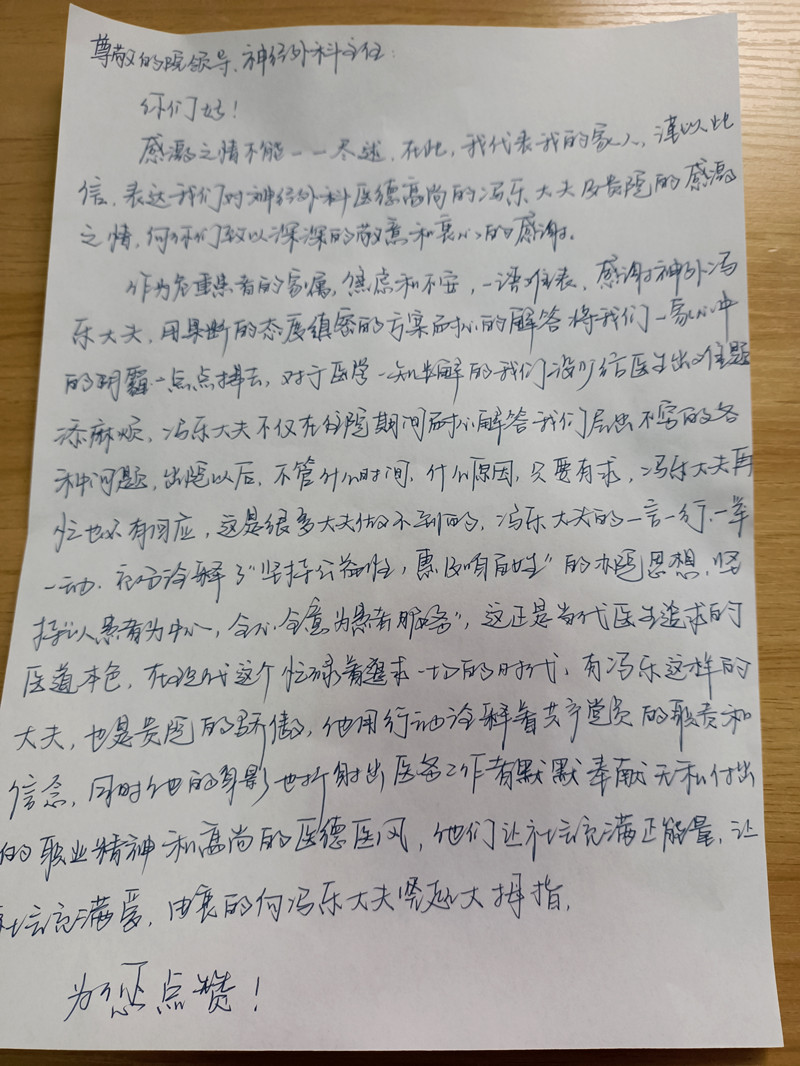 尊敬的院领导、神经外科主任:
你们好!
感激之情不能一一尽述,在此,我代表我的家人,谨以此
信,表达我们对神经外科医德高尚的冯乐大夫及贵院的感激
之情,向你们致以深深的敬意和衷心的感谢。
作为危重患者的家属,焦虑和不安,一语难表,感谢神外冯
乐大夫,用果断的态度缜密的方案耐心的解答将我们一家心中
的阴霾一点点拂去,对于医学一知半解的我们没少给医生出难题
添麻烦,冯乐大夫不仅在住院期间耐心解答我们层出不穷的各
种问题,出院以后,不管什么时间,什么原因,只要有求,冯乐大夫再
忙也必有回应,这是很多大夫做不到的,冯乐大夫的一言一行,一举
一动,充分诠释了“坚持公益性,惠及咱百姓”的办院思想,坚
持“以患者为中心,全心全意为患者服务”,这正是当代医生追求的
医道本色,在现代这个忙碌着追求一切的时代,有冯乐这样的
大夫,也是贵院的骄傲,他用行动诠释着共产党员的职责和
信念,同时他的身影也折射出医务工作者默默奉献无私付出
的职业精神和高尚的医德医风,他们让社会充满正能量,让
社会充满爱,由衷的向冯乐大夫竖起大拇指,
为您点赞!